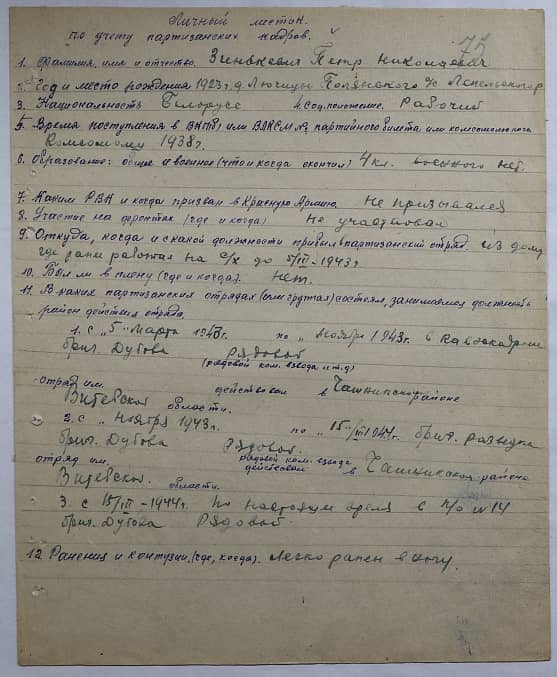 Личный листок
по учету партизанских кадров.
75
1. Фамилия, имя и отчество. Зенькевич Петр Николаевич
2. Год и место рождения 1923 г. д. Лючицы Полянского с/с Лепельского р
3. Национальность Белорусс в соц. положение. Рабочий
5. Время поступления в ВКПб, или ВЛКСМ № партийного билета или комсомольского
Комсомолу 1938 г.
6. Образование: общее и военное (что и когда окончил) 4 кл. военного нет.
7. Каким РВК и когда призван в Красную Армию не призывался
8. Участие на фронтах (где и когда) не участвовал
9. Откуда, когда и с какой должности прибыл в партизанский отряд. из дому
где рани работал на с/х до 5/III-1943 г
10. Был ли в плену (где и когда). нет.
11. В каких партизанских отрядах (или группах) состоял, занимаемая должность
район действия отряда.
1. с „5" марта 1943 г. по „ ноября 1943 г. в кавэскадроне
бриг. Дубова Рядовой
(рядовой ком. взвода и т.д)
отряд им. действовал в Чашникском районе
Витебской области.
2. с „ ноября 1943 г. по „ 15/III 1944 г. бриг. разведке
бриг. Дубова Рядовой.
отряд им. рядовой ком. взвода
действовал в Чашникском районе
Витебской. области.
3. с 15/III-1944 г. по настоящи время в п/о № 14
бриг. Дубова Рядовой.
12. Ранения и контузии, (где, когда). легко ранен в ногу.